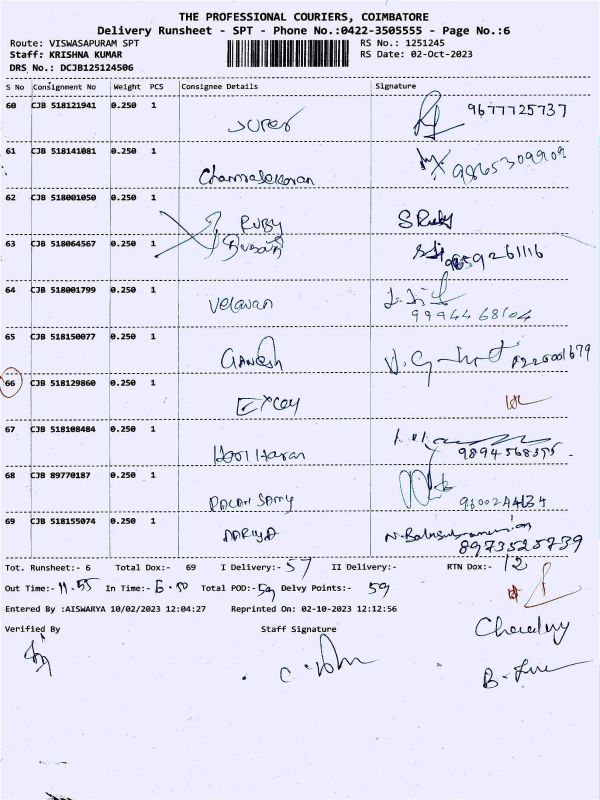 THE PROFESSIONAL COURIERS, COIMBATORE
Delivery Runsheet - SPT - Phone No.:0422-3505555 - Page No.:6
Route: VISWASAPURAM SPT RS No.: 1251245
Staff: KRISHNA KUMAR RS Date: 02-Oct-2023
DRS No.: DCJB125124506
S No Consignment No Weight PCS Consignee Details Signature
60 CJB 518121941 0.250 1 9677725737
SUPER
61 CJB 518141081 0.250 1
62 CJB 518001050 0.250 1
RUBY S Ruby
63 CJB 518064567 0.250 1
64 CJB 518001799 0.250 1
Velavan
9994468104
65 CJB 518150077 0.250 1
GANESH
66 CJB 518129860 0.250 1
67 CJB 518108484 0.250 1
Hari Haran
68 CJB 89770187 0.250 1
PALANI SAMY 9600244134
69 CJB 518155074 0.250 1
N. Balasubramanian
8973525739
Tot. Runsheet:- 6 Total Dox:- 69 I Delivery:- 57 II Delivery:- RTN Dox:- 12
Out Time:- 11.55 In Time:- 6.50 Total POD:- 59 Delvy Points:- 59
Entered By :AISWARYA 10/02/2023 12:04:27 Reprinted On: 02-10-2023 12:12:56
Verified By Staff Signature